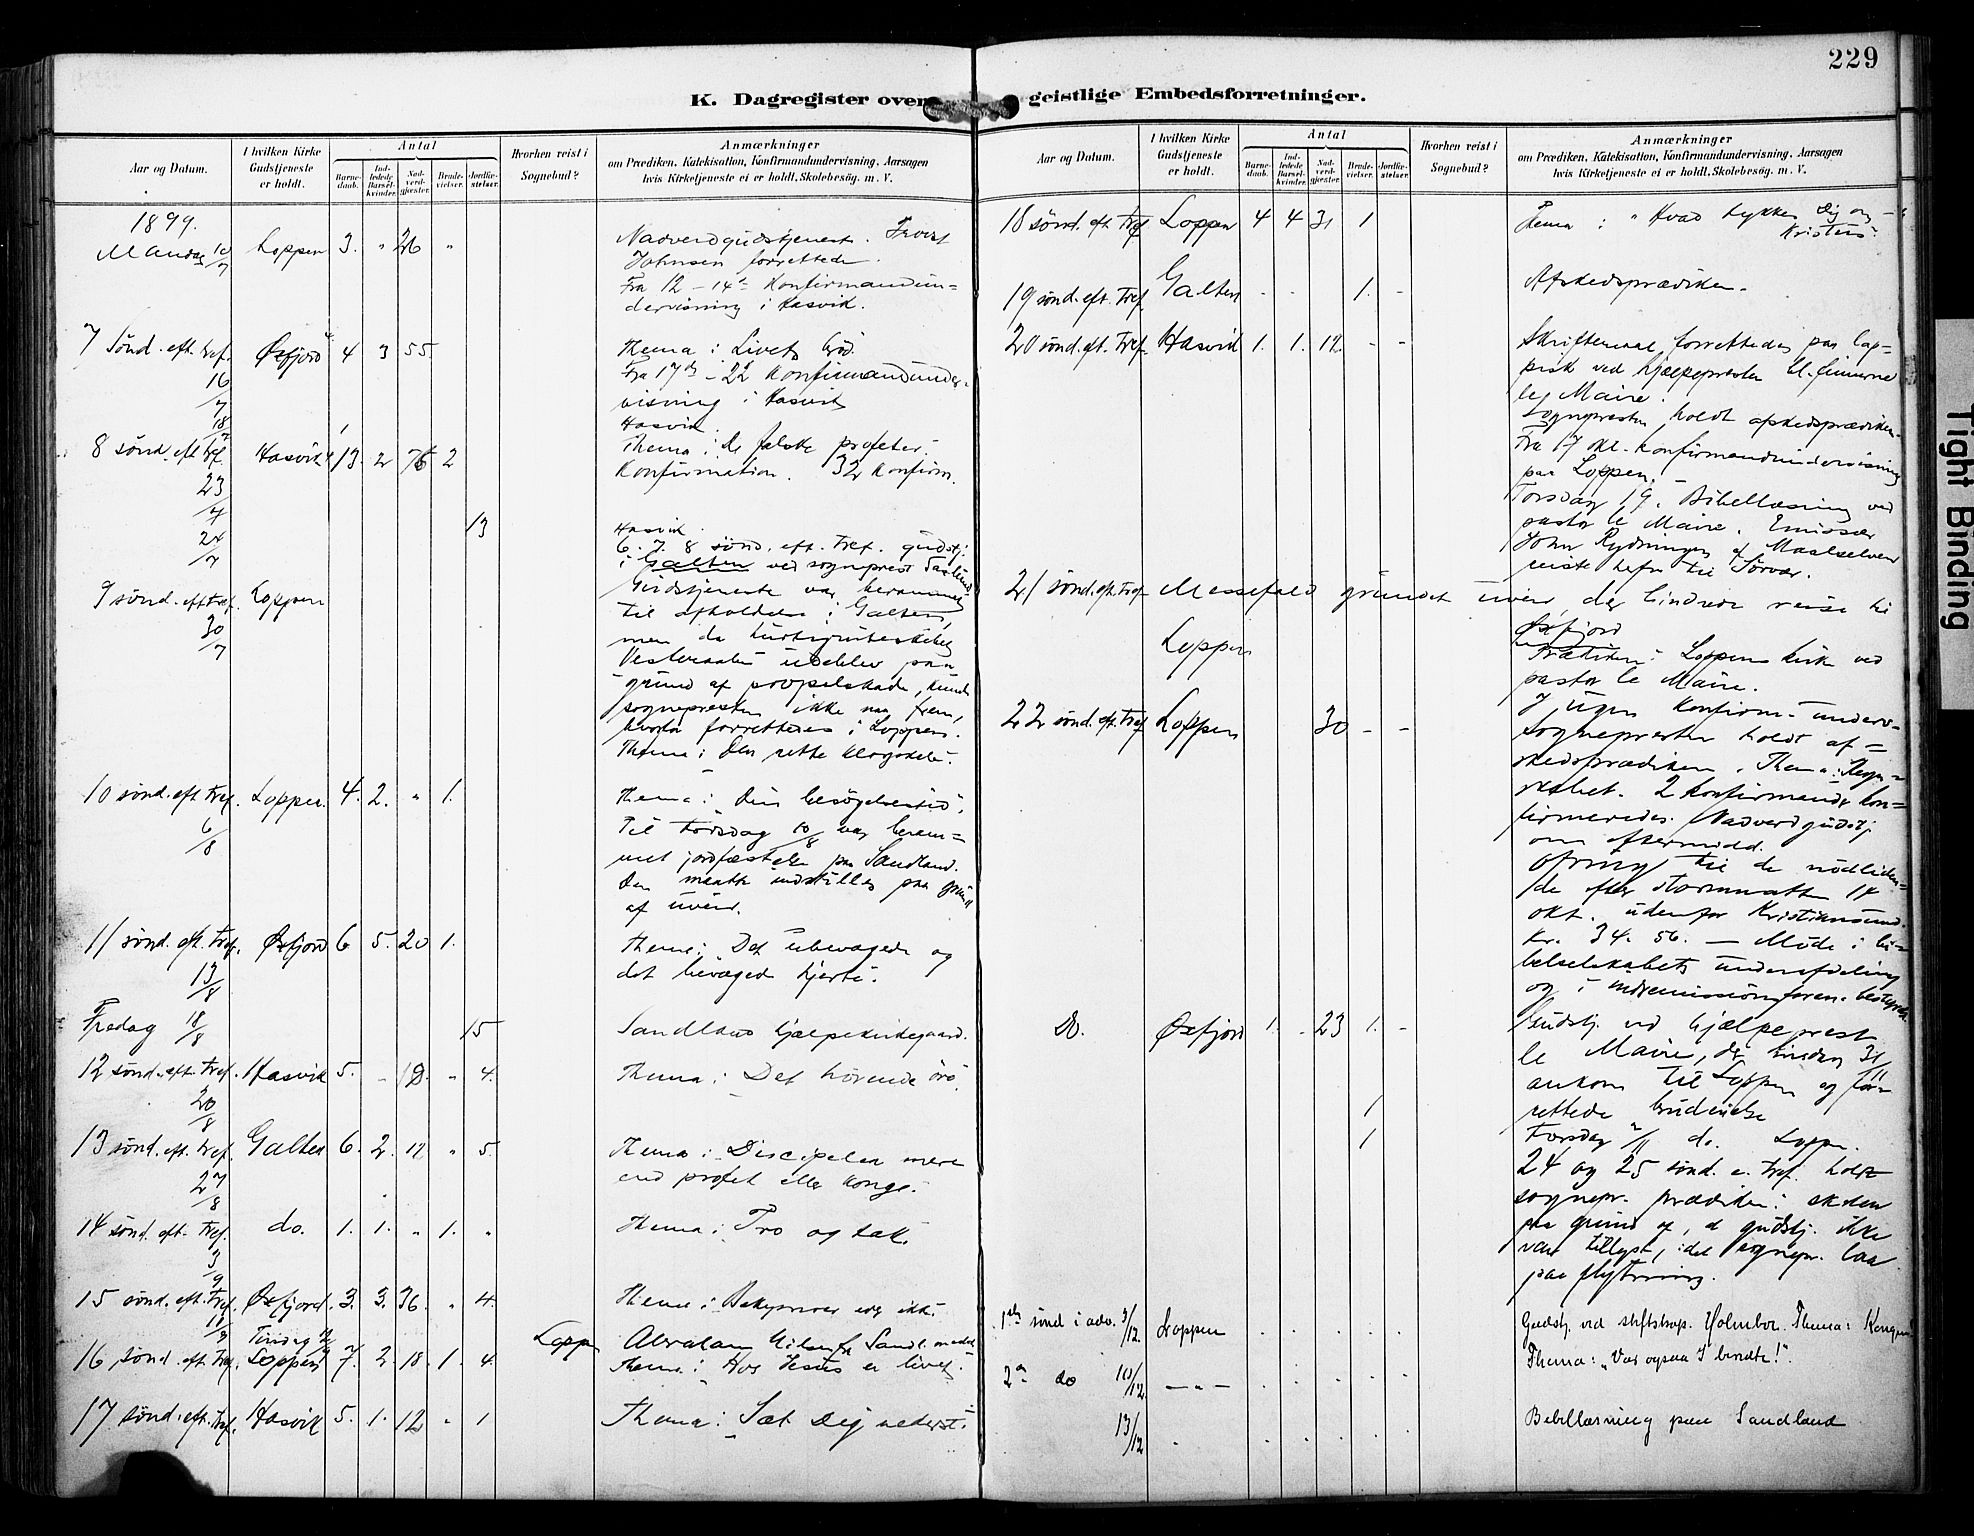 229
K. Dagregister over geistlige Embedsforretninger.
Aar og Datum. I hvilken Kirke Gudstjeneste er holdt. Antal Barnedaab. Indledede Barselkvinder. Nadverdgjester. Brudevielser. Jordfæstelser. Hvorhen reist i Sognebud? Anmærkninger om Prædiken, Katekisation, Konfirmandundervisning, Aarsagen hvis Kirketjeneste ei er holdt, Skolebesøg. m. V.
1899.
Mandag 10/7 Loppen 3. " 26 " Nadverdgudstjenest. Provst
Johnsen forrettede.
Fra 12 - 14de Konfirmandun=
dervisning i Hasvik.
7 Sønd. eft. tref. Øxfjord 4 3 55 Thema: Livets brød.
16/7 Fra 17de - 22 Konfirmandunder-
visning i Hasvik
18/7 1 Hasvik.
8 sønd. eft. tref. Hasvik 13. 2 76 2 Thema: De falske profeter.
23/7 Konfirmation. 32 Konfirm.
24/7 13 Hasvik.
6. 7. 8 sønd. eft. tref. gudstj.
i Galten ved sogneprest
9 sønd. eft. tref. Loppen Gudstjeneste var berammet
30/7 til afholdelse i Galten,
men da hurtigruteskibet
Vesteraalen udeblev paa
grund af propelskade, kunde
sognepresten ikke naa frem,
hvorfor forrettedes i Loppen.
Thema: Den rette klogskab.
10 sønd. eft. tref. Loppen. 4. 2. " 1. Thema: Din besøgelsestid.
6/8 Til Torsdag 10/8 var beram=
met jordfæstelse paa Sandland.
Den maatte indstilles paa grund
af uveir.
11 sønd. eft. tref. Øxfjord 6 5. 20 1. Thema: Det ubevægede og
13/8 det bevægede hjerte.
Fredag 18/8 15 Sandlands hjælpekirkegaard.
12 sønd. eft. tref. Hasvik 5. " 18. " 4. Thema: Det hørende øre.
20/8
13 sønd. eft. tref. Galten 6. 2. 12 " 5. Thema: Discipelen mere
27/8 end profet eller konge.
14 sønd. eft. tref. do. 1. 1. " 1. " Thema: Tro og tak.
3/9
15 sønd. eft. tref. Øxfjord 3. 3. 36. " 4. Thema: Bekymrer eder ikke.
10/9 Tirsdag 12/9 Lopp Abraham Nilsen fra Sandl.
16 sønd. eft. tref. Loppen 7. 2 18. 1. 4. Thema: Hos Jesus er livet.
17 sønd. eft. tref. Hasvik 5. 1. 12 " 1 Thema: Sæt dig nederst.
Aar og Datum. I hvilken Kirke Gudstjeneste er holdt. Antal Barnedaab. Indledede Barselkvinder. Nadverdgjester. Brudevielser. Jordfæstelser. Hvorhen reist i Sognebud? Anmærkninger om Prædiken, Katekisation, Konfirmandundervisning, Aarsagen hvis Kirketjeneste ei er holdt, Skolebesøg. m. V.
18 sønd. eft. tref. Loppen 4 4 31 1 Thema: "Hvad tykkes dig om
Kristus?"
19 sønd. eft. tref. Galten - - 1. - Afskedsprædiken.
20 sønd. eft. tref. Hasvik 1. 1. 12 - - Skriftemaal forrettedes paa lap=
pisk ved hjælpepresten til finnerne
le Maire.
Sognepresten holdt afskedsprædiken.
Fra 17 okt. Konfirmandundervisning
paa Loppen.
Torsdag 19. Bibellæsning ved
pastor le Maire. Emissær
John Rydningen af Maalselven
reiste herfra til Sørvær.
21 sønd. eft. tref. Messefald grundet uveir, der hindrede reise til
Øxfjord
Loppen Prædiken i Loppens kirke ved
pastor le Maire.
I ugen Konfirm.-underv.
22 sønd. eft. tref. Loppen 30 - - Sognepresten holdt af=
skedsprædiken. Thema: Regn=
skabet. 2 Konfirmander kon=
firmeredes. Nadverdgudstj.
om eftermidd.
Ofring til de nødliden=
de efter stormnatten 14
okt. udenfor Kristiansund.
Kr. 34. 56. — Møde i bi=
belselskabets underafdeling
og i indremissionsforen. bestyrelse
Do. Øxfjord 1. . 23 1. - Gudstj. ved hjælpeprest
le Maire, der tirsdag 31/
ankom til Loppen og for-
1 rettede brudvielse
1 Torsdag 2/11 do. Loppen.
24 og 25 sønd. e. tref. holdt
sognepr. prædiken i skolen
paa grund af, at gudstj. ikke
var tillyst, idet sognepr. laa
paa flytning.
1ste sønd i adv. 3/12 Loppen . . . . . Gudstj. ved stiftskap. Holmboe. Thema:
2den do 10/12 — " — . . . . . Thema: "Vær ogsaa I beredte!".
13/12 . . . . . Bibellæsning paa Sandland
Tight Binding